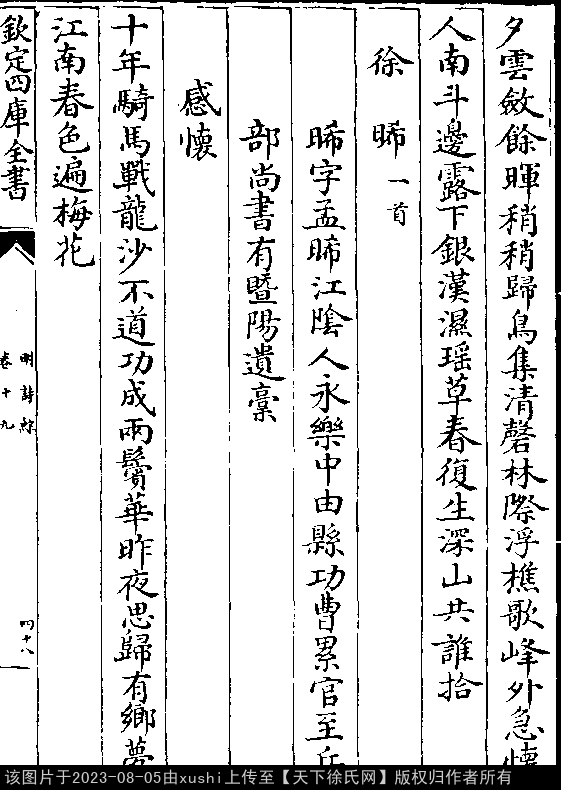 夕雲斂餘暉稍稍歸鳥集清磬林際浮樵歌峰外急懐
人南斗邊露下銀漢濕瑶草春復生深山共誰拾
徐晞一首
晞字孟晞江陰人永樂中由縣功曹累官至兵
部尚書有暨陽遺稾
感懷
十年騎馬戰龍沙不道功成兩鬢華昨夜思歸有鄉夢
江南春色遍梅花
欽定四庫全書
明詩綜
卷十九
四十八
该图片于2023-08-05由xushi上传至【天下徐氏网】版权归作者所有